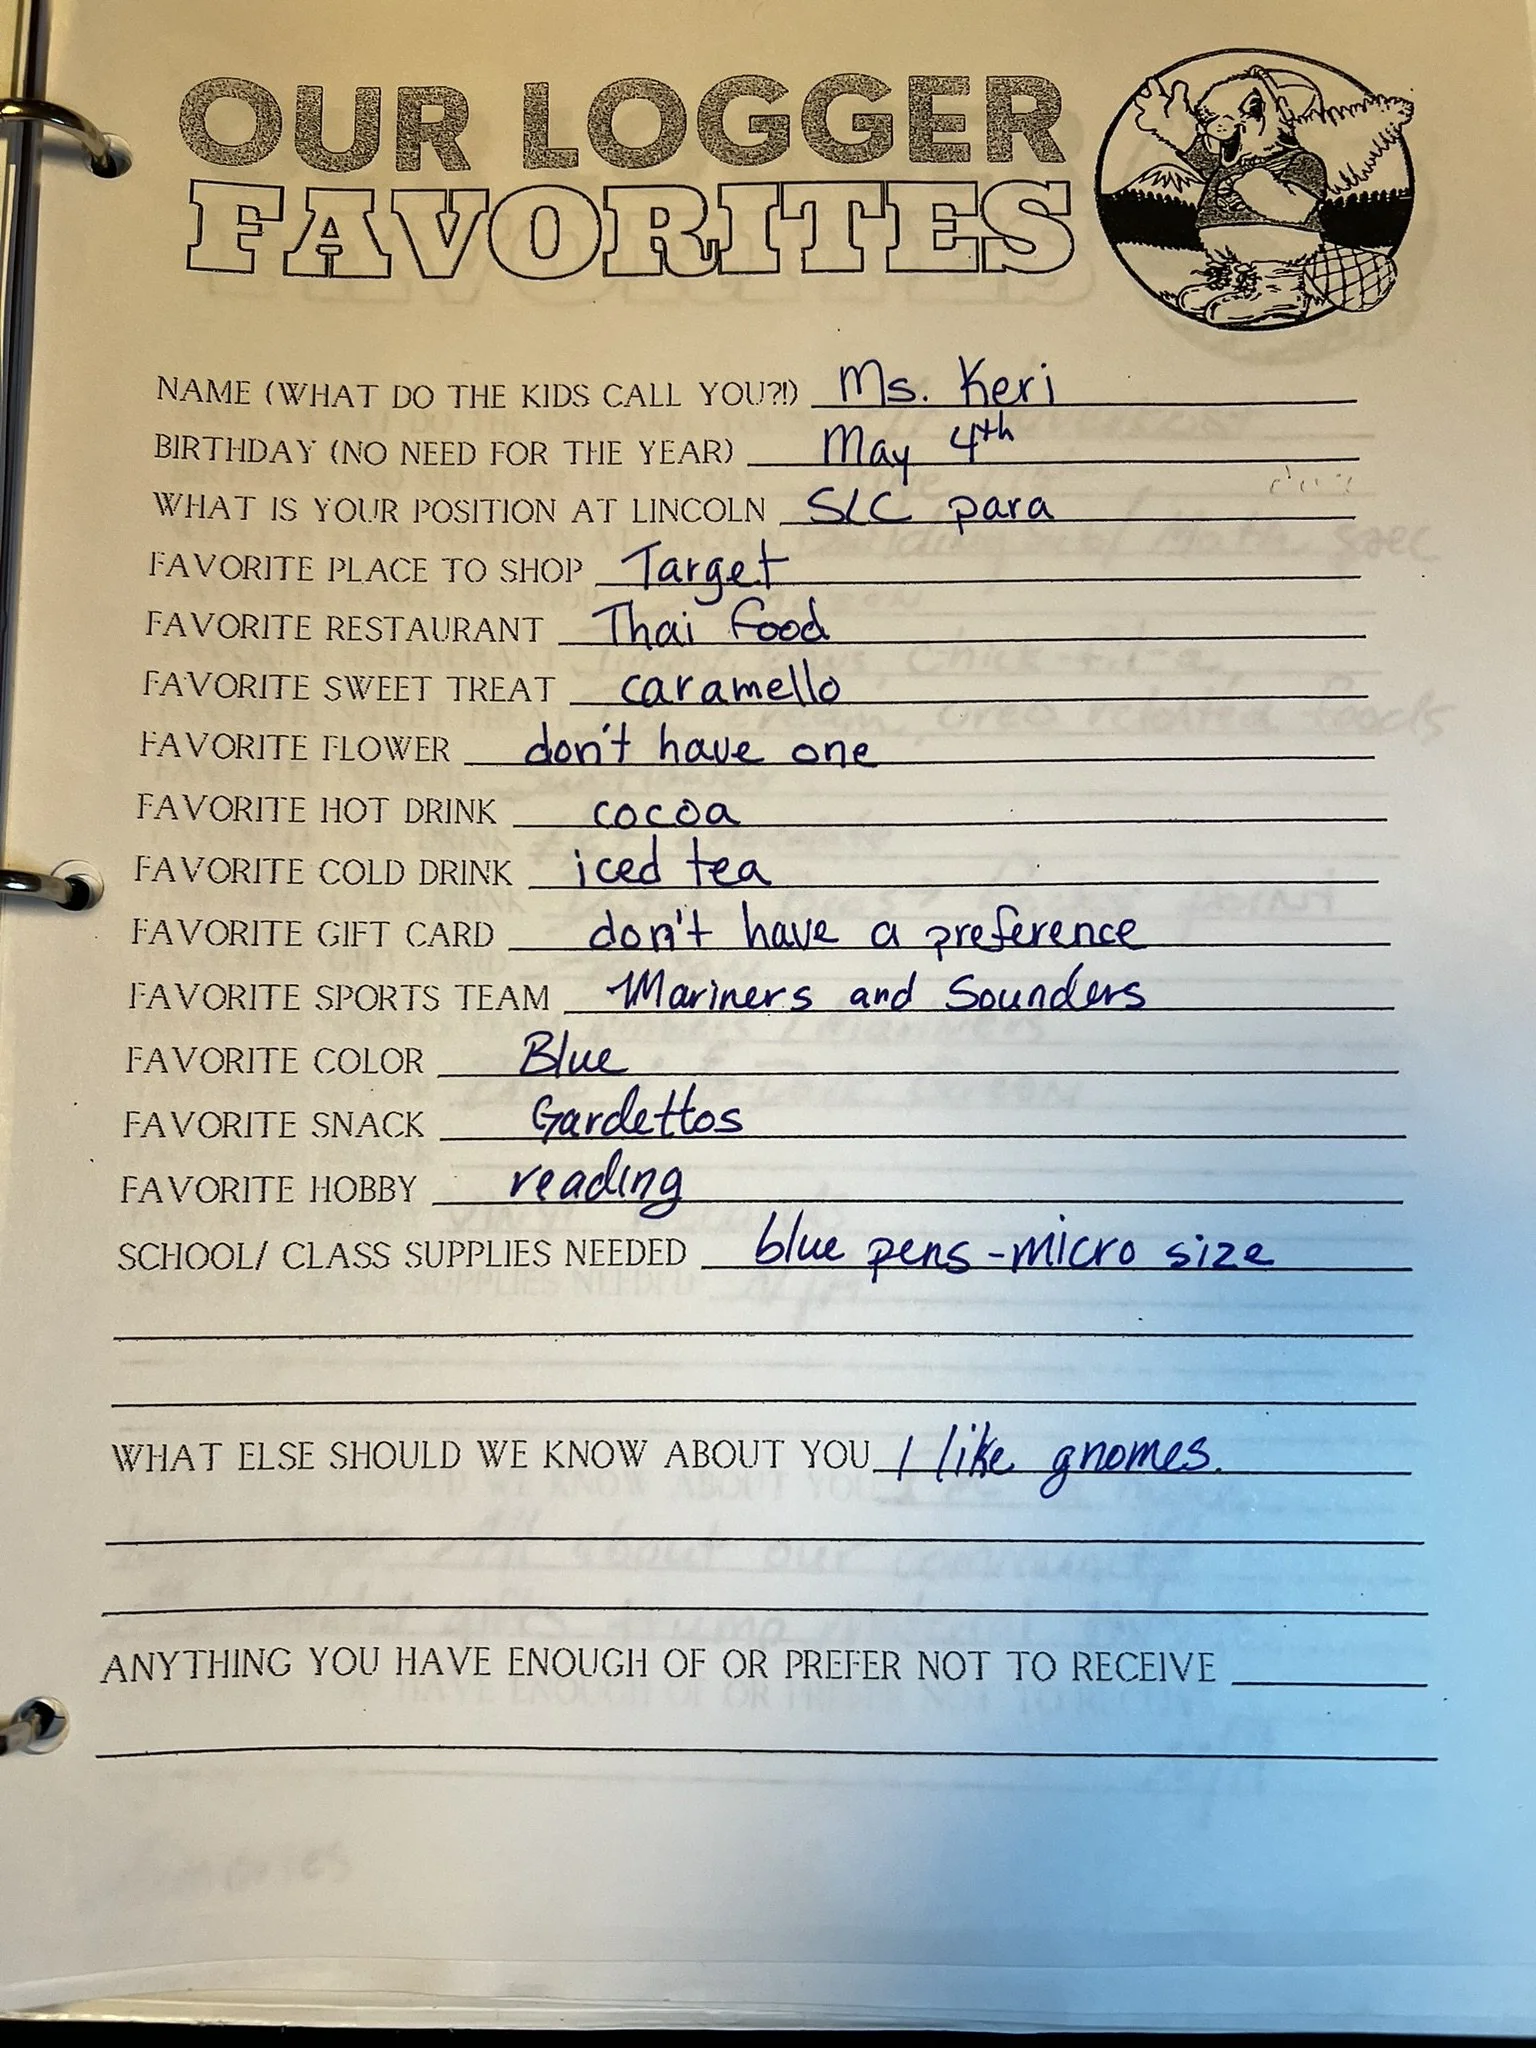 OUR LOGGER
FAVORITES
NAME (WHAT DO THE KIDS CALL YOU?!) Ms. Keri
BIRTHDAY (NO NEED FOR THE YEAR) May 4th
WHAT IS YOUR POSITION AT LINCOLN SLC para
FAVORITE PLACE TO SHOP Target
FAVORITE RESTAURANT Thai food
FAVORITE SWEET TREAT caramello
FAVORITE FLOWER don't have one
FAVORITE HOT DRINK cocoa
FAVORITE COLD DRINK iced tea
FAVORITE GIFT CARD don't have a preference
FAVORITE SPORTS TEAM Mariners and Sounders
FAVORITE COLOR Blue
FAVORITE SNACK Gardettos
FAVORITE HOBBY reading
SCHOOL/ CLASS SUPPLIES NEEDED blue pens - micro size
WHAT ELSE SHOULD WE KNOW ABOUT YOU I like gnomes.
ANYTHING YOU HAVE ENOUGH OF OR PREFER NOT TO RECEIVE